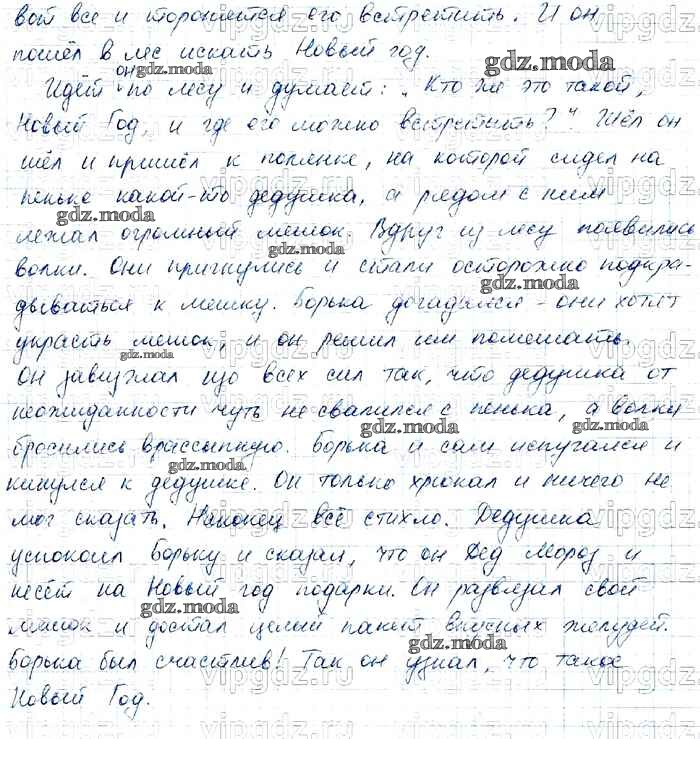 вой все и торопится его встретить. И он
пошёл в лес искать Новый год.
Идёт он по лесу и думает: „Кто же это такой,
Новый Год, и где его можно встретить?" Шёл он
шёл и пришёл к полянке, на которой сидел на
пеньке какой-то дедушка, а рядом с ним
лежал огромный мешок. Вдруг из лесу появились
волки. Они пригнулись и стали осторожно подкра-
дываться к мешку. Борька догадался - они хотят
украсть мешок, и он решил им помешать.
Он завизжал что всех сил так, что дедушка от
неожиданности чуть не свалился с пенька, а волки
бросились врассыпную. Борька и сам испугался и
кинулся к дедушке. Он только хрюкал и ничего не
мог сказать. Наконец всё стихло. Дедушка
успокоил Борьку и сказал, что он Дед Мороз и
несёт на Новый год подарки. Он развязал свой
мешок и достал целый пакет вкусных желудей.
Борька был счастлив! Так он узнал, что такое
Новый Год.
gdz.moda
vipgdz.ru